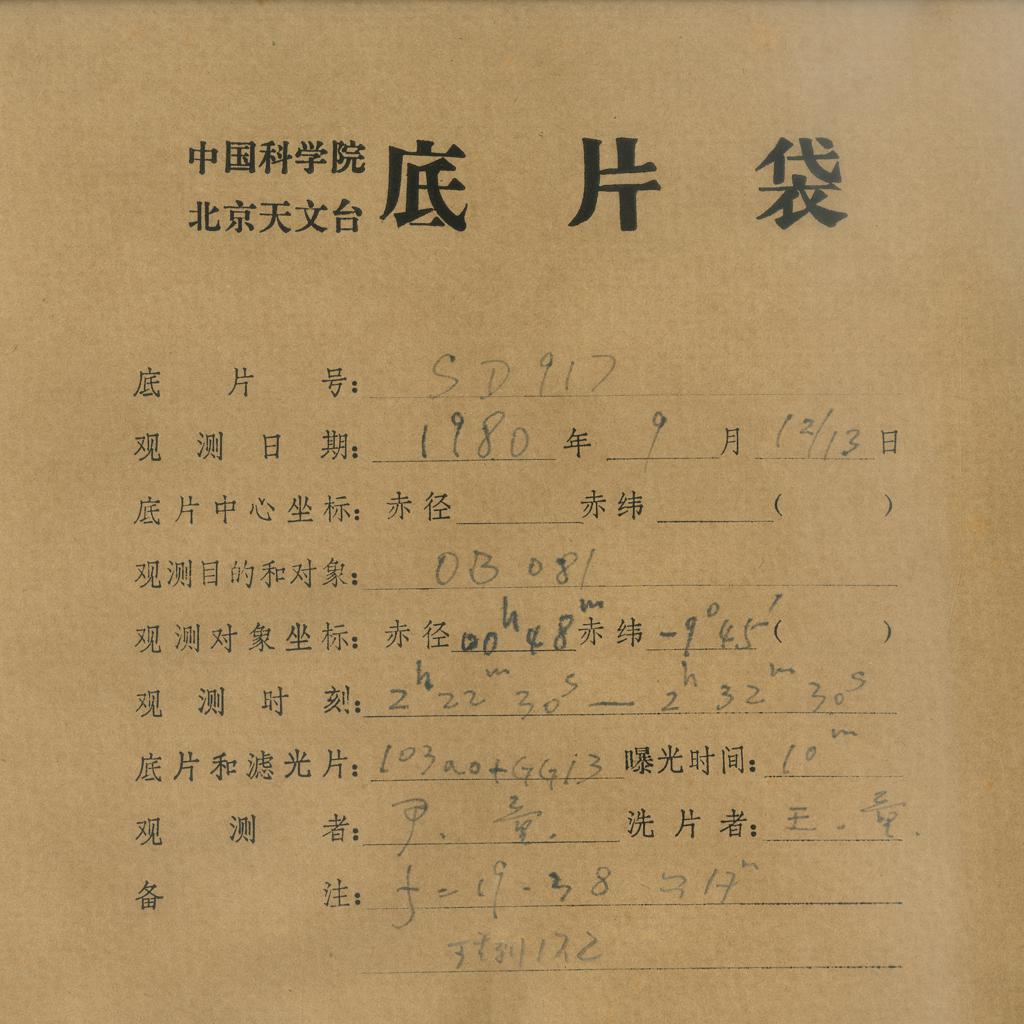 中国科学院
北京天文台
底片袋
底片号: SD 917
观测日期: 1980 年 9 月 12/13 日
底片中心坐标: 赤径 赤纬 ( )
观测目的和对象: OB 081
观测对象坐标: 赤径 00h 48m 赤纬 -9° 45′ ( )
观测时刻: 2h 22m 30s — 2h 32m 30s
底片和滤光片: 103ao+GG13 曝光时间: 10m
观测者: 尹. 童. 洗片者: 王. 童.
备注: f = 19.38 17m